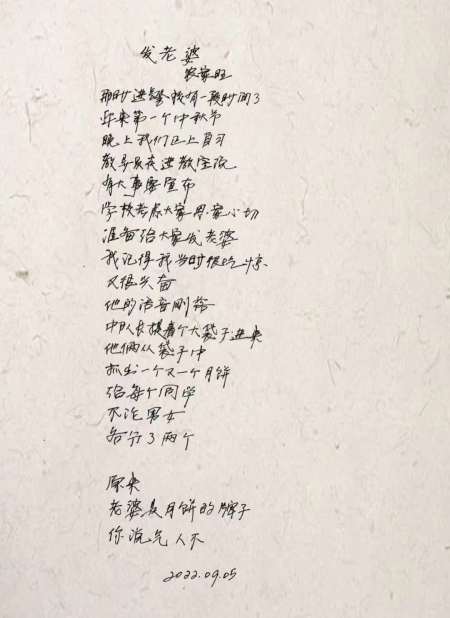 发老婆
农家旺
那时进警校有一段时间了
迎来第一个中秋节
晚上我们还上自习
教导员突进教室说
有大事要宣布
学校考虑大家思家心切
准备给大家发老婆
我记得我当时很吃惊
又很兴奋
他的话音刚落
中队长提着个大袋子进来
他俩从袋子中
抓出一个又一个月饼
给每个同学
不论男女
各分了两个
原来
老婆是月饼的牌子
你说气人不
2022.09.05